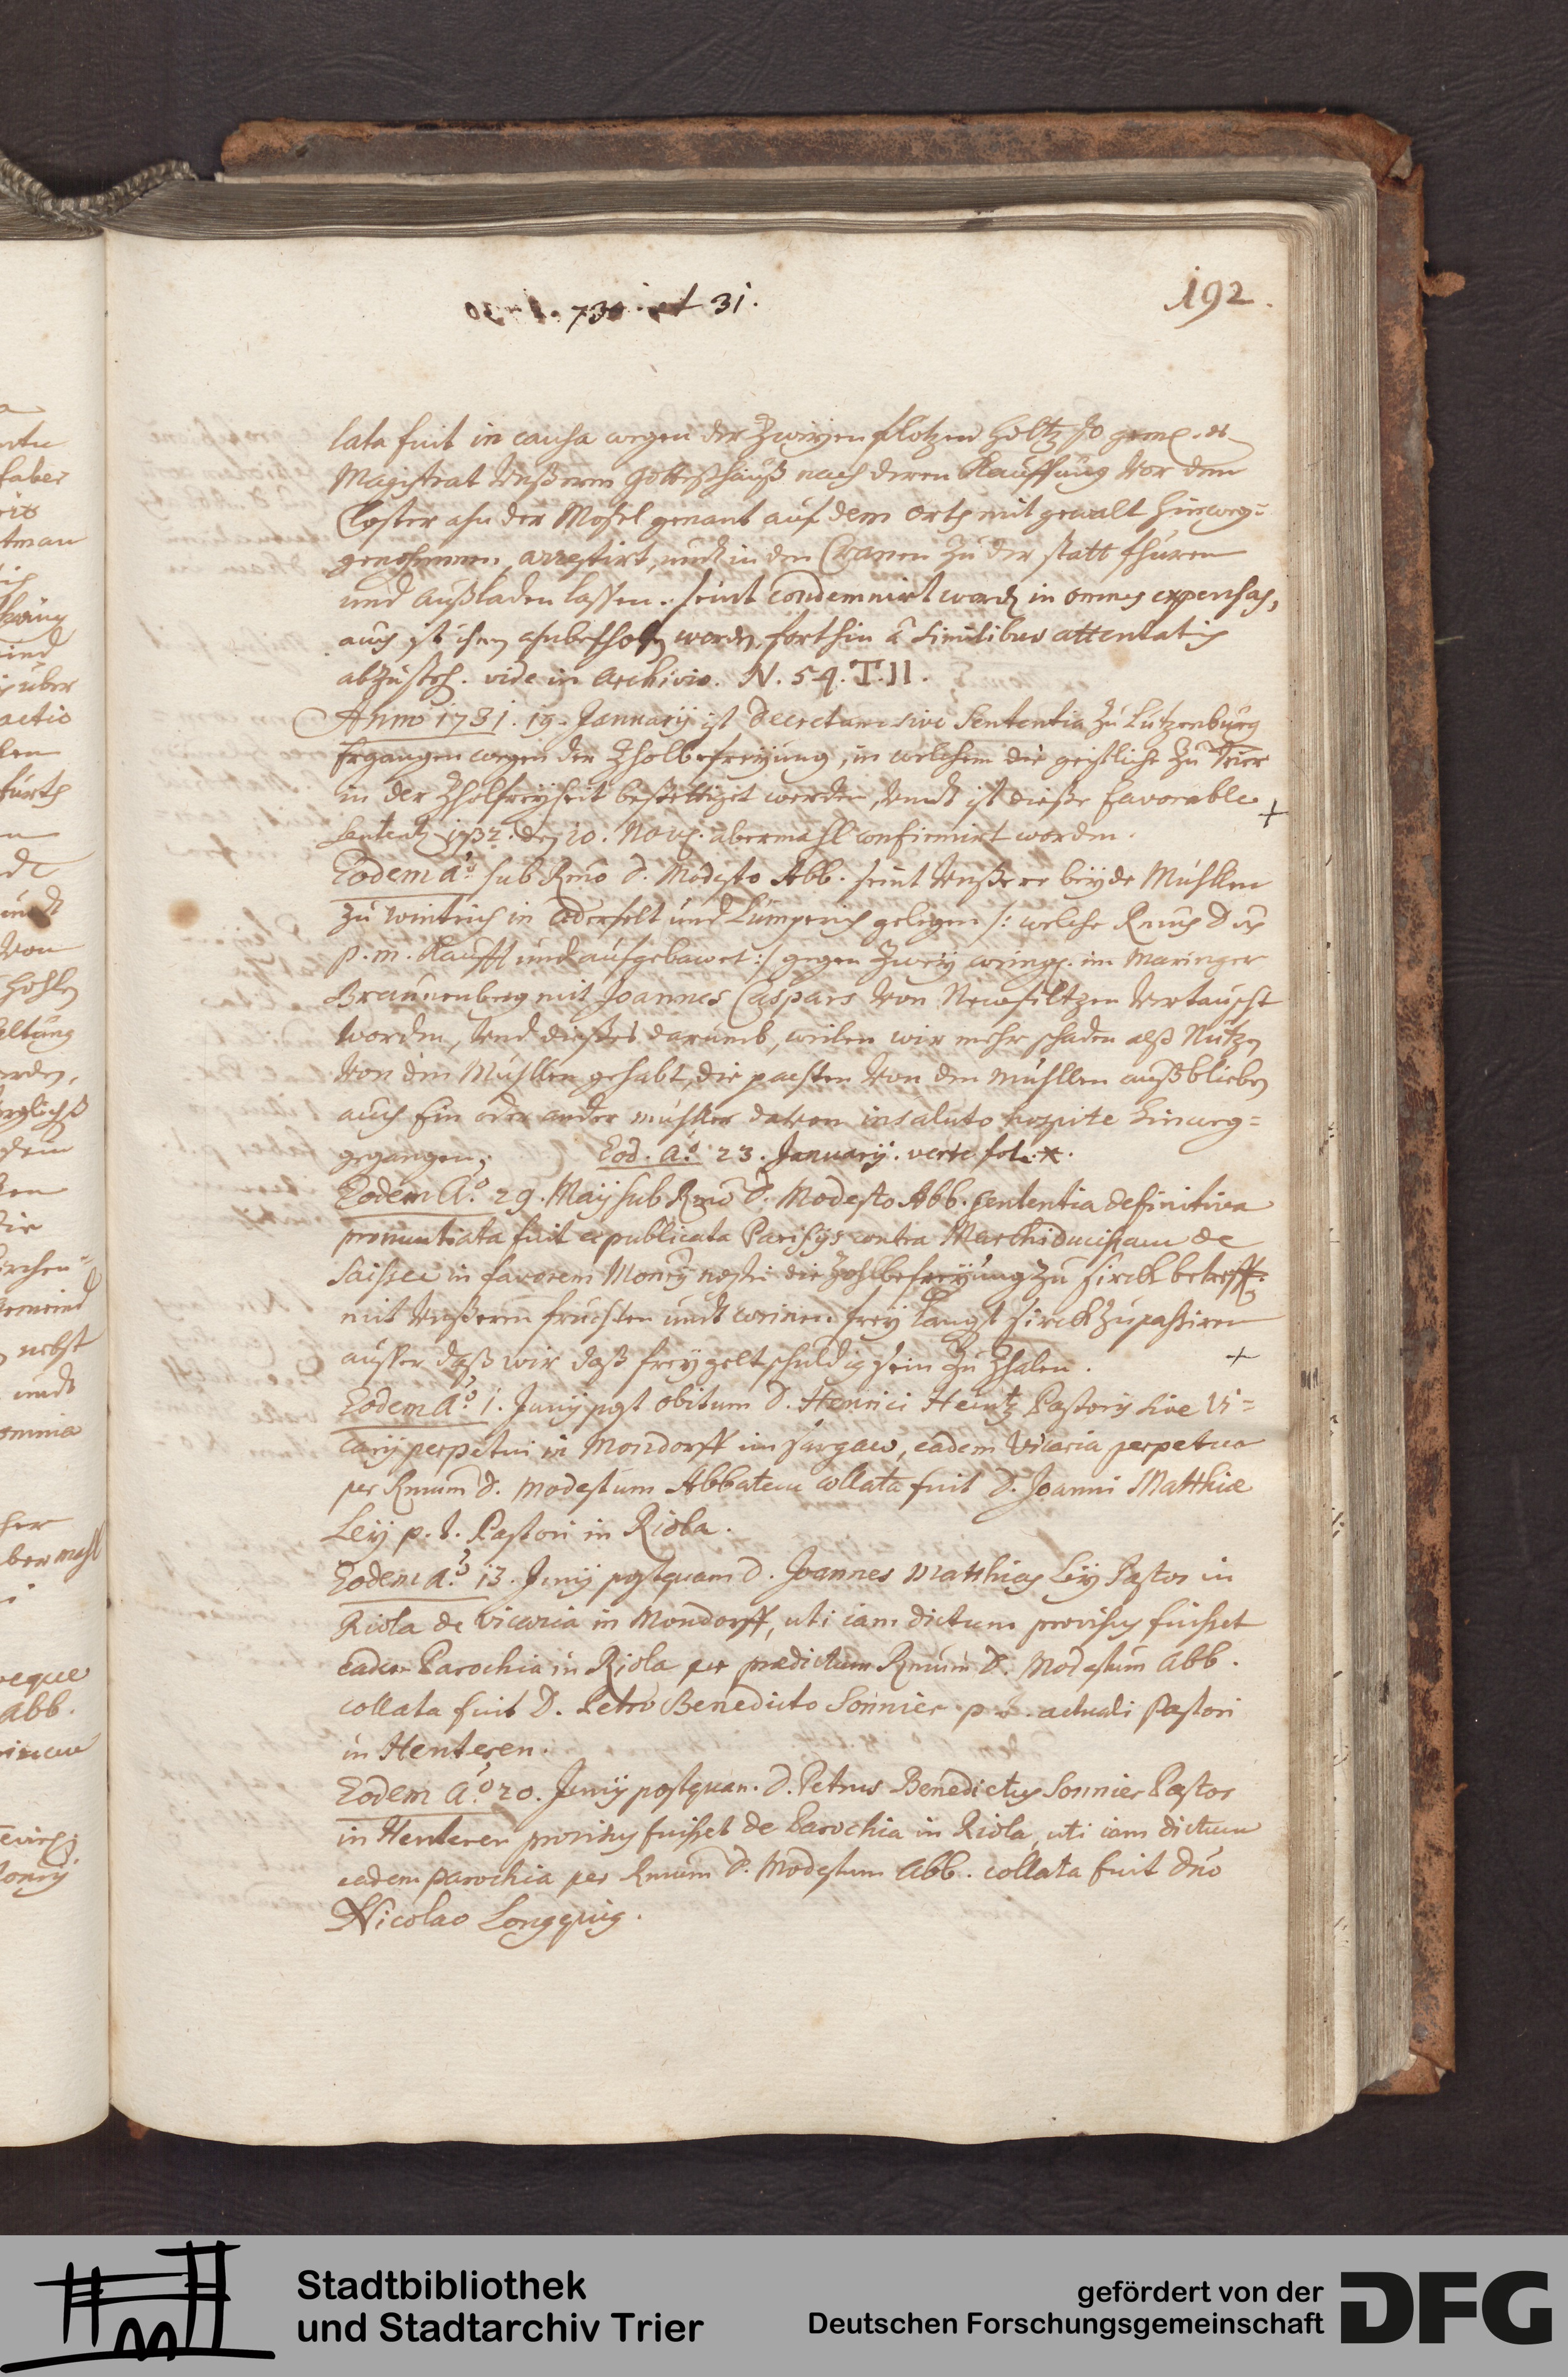 192.
730 et 31.
lata fuit in causa wegen der Zweyen flotzen Holtz so gem. et
Magistrat Unßerem Gotteßhauß nach deren Kauffung vor dem
Closter ahn der Mosel genant auf dem Orth mit gewalt hinweg=
genohmmen, arrestirt, undt in den Cranen zu der statt führen
und außladen lassen. seint condemnirt word in omnes expensas,
auch ist ihn anbefohlen worden, forthin a similibus attentatis
abzusteh. vide in Archivio. N. 54. T. II.
Anno 1731. 19. Januarij ist Decretum sive Sententia zu Lutzenburg
Ergangen wegen der Zholbefreyung, in welchem die geistliche zu Trier
in der Zholfreyheit bestettiget werden, undt ist dieße favorable +
Sententz 1732. den 20. Nov. abermahl confirmirt worden.
Eodem aº sub Rmo D. Modesto Abb. seint Unßere beyde Mühllen
zu Wintrich in und gelegen /: welche Rmus D
p. m. Kaufft und aufgebawet :/ gegen Zwey im Maringer
Braunenberg mit Joannes Caspars von Newfiltzen vertauscht
worden, und dießes darumb, weilen wir mehr schaden alß Nutzen
von den Mühllen gehabt, die pachten von den mühllen außblieben
auch Ein oder ander mühller davon insaluto hospite hinweg=
gegangen; Eod. aº 23. Januarij. verte fol. *.
Eodem Aº 29. Maij sub Rmo D. Modesto Abb. sententia definitiva
pronuntiata fuit et publicata Parisijs contra Marchiducissam de
Saissee in favorem Monrij nostri die Zohlbefreyung zu Sirck betreff.
mit Unßeren fruchten undt weinen frey langst Sirck zu passiren
ausser daß wir daß freygelt schuldig sein zu Zhalen. +
Eodem Aº 1. Junij post obitum D. Henrici Heintz Pastoris sive Vi=
carij perpetui in Mondorff im Sargaw, eadem Vicaria perpetua
per Rmum D. Modestum Abbatem collata fuit D. Joanni Matthiæ
Leij p. t. Pastori in Riola.
Eodem Aº 13. Junij postquam D. Joannes Matthias Leij Pastor in
Riola de Vicaria in Mondorff, uti iam dictum provisus fuisset
eadem Parochia in Riola per prædictum Rmum D. Modestum Abb.
collata fuit D. Petro Benedicto Sonnier p. t. actuali Pastori
in Henteren.
Eodem Aº 20. Junij postquam D. Petrus Benedictus Sonnier Pastor
in Henteren provisus fuisset de Parochia in Riola, uti iam dictum
eadem parochia per Rmum D. Modestum Abb. collata fuit Dno
Nicolao Longquig.
Stadtbibliothek
und Stadtarchiv Trier
gefördert von der
Deutschen Forschungsgemeinschaft
DFG